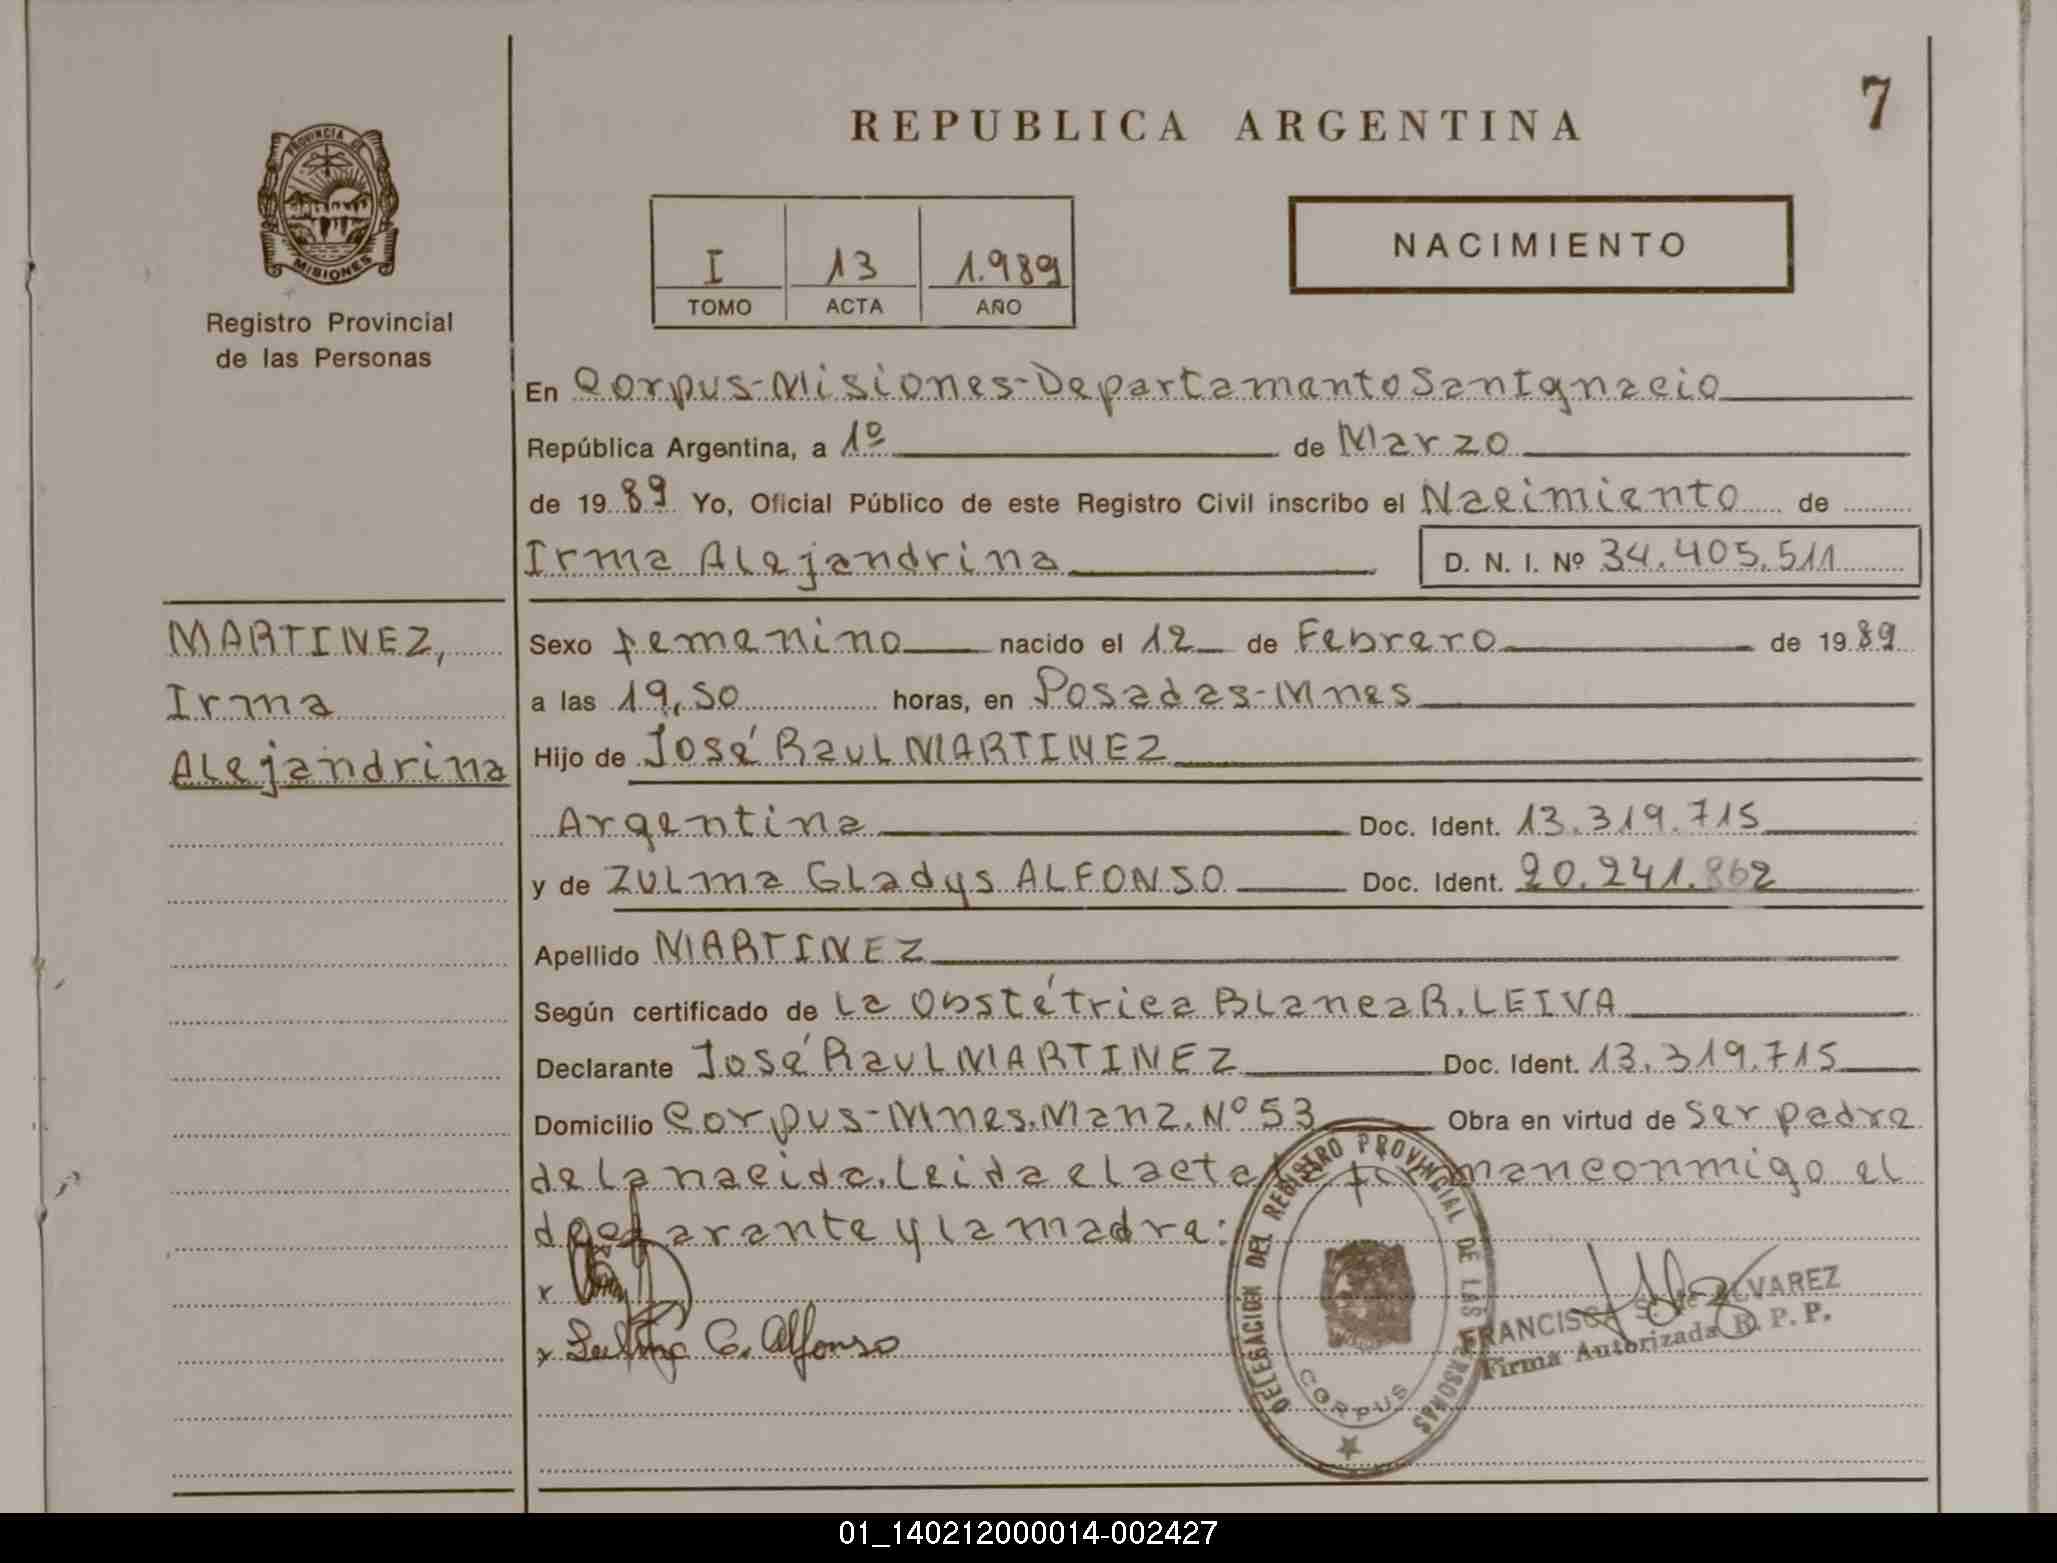 7
REPUBLICA ARGENTINA
PROVINCIA DE
MISIONES
Registro Provincial
de las Personas
NACIMIENTO
I 13 1.989
TOMO ACTA AÑO
En Corpus-Misiones-Departamento San Ignacio
República Argentina, a 1º de Marzo
de 1989 Yo, Oficial Público de este Registro Civil inscribo el Nacimiento de
Irma Alejandrina D. N. I. Nº 34.405.511
MARTINEZ,
Irma
Alejandrina
Sexo femenino nacido el 12 de Febrero de 1989
a las 19,50 horas, en Posadas-Mnes
Hijo de José Raul MARTINEZ
Argentina Doc. Ident. 13.319.715
y de Zulma Gladys ALFONSO Doc. Ident. 20.241.862
Apellido MARTINEZ
Según certificado de La Obstétrica Blanca R. LEIVA
Declarante José Raul MARTINEZ Doc. Ident. 13.319.715
Domicilio Corpus-Mnes. Manz. Nº 53 Obra en virtud de ser padre
de la nacida. Leida el acta firman conmigo el
declarante y la madre:
x
x Zulma G. Alfonso
DELEGACION DEL REGISTRO PROVINCIAL DE LAS PERSONAS
CORPUS
FRANCISCA S. de ALVAREZ
Firma Autorizada R. P. P.
01_140212000014-002427